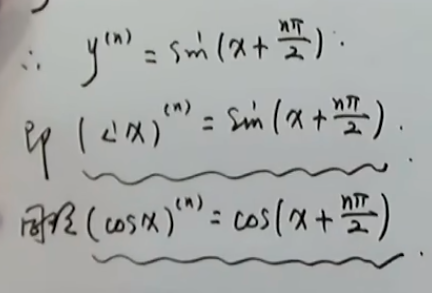 ∴ y⁽ⁿ⁾ = sin(x + nπ/2).
即 (sin x)⁽ⁿ⁾ = sin(x + nπ/2).
同理 (cosx)⁽ⁿ⁾ = cos(x + nπ/2).